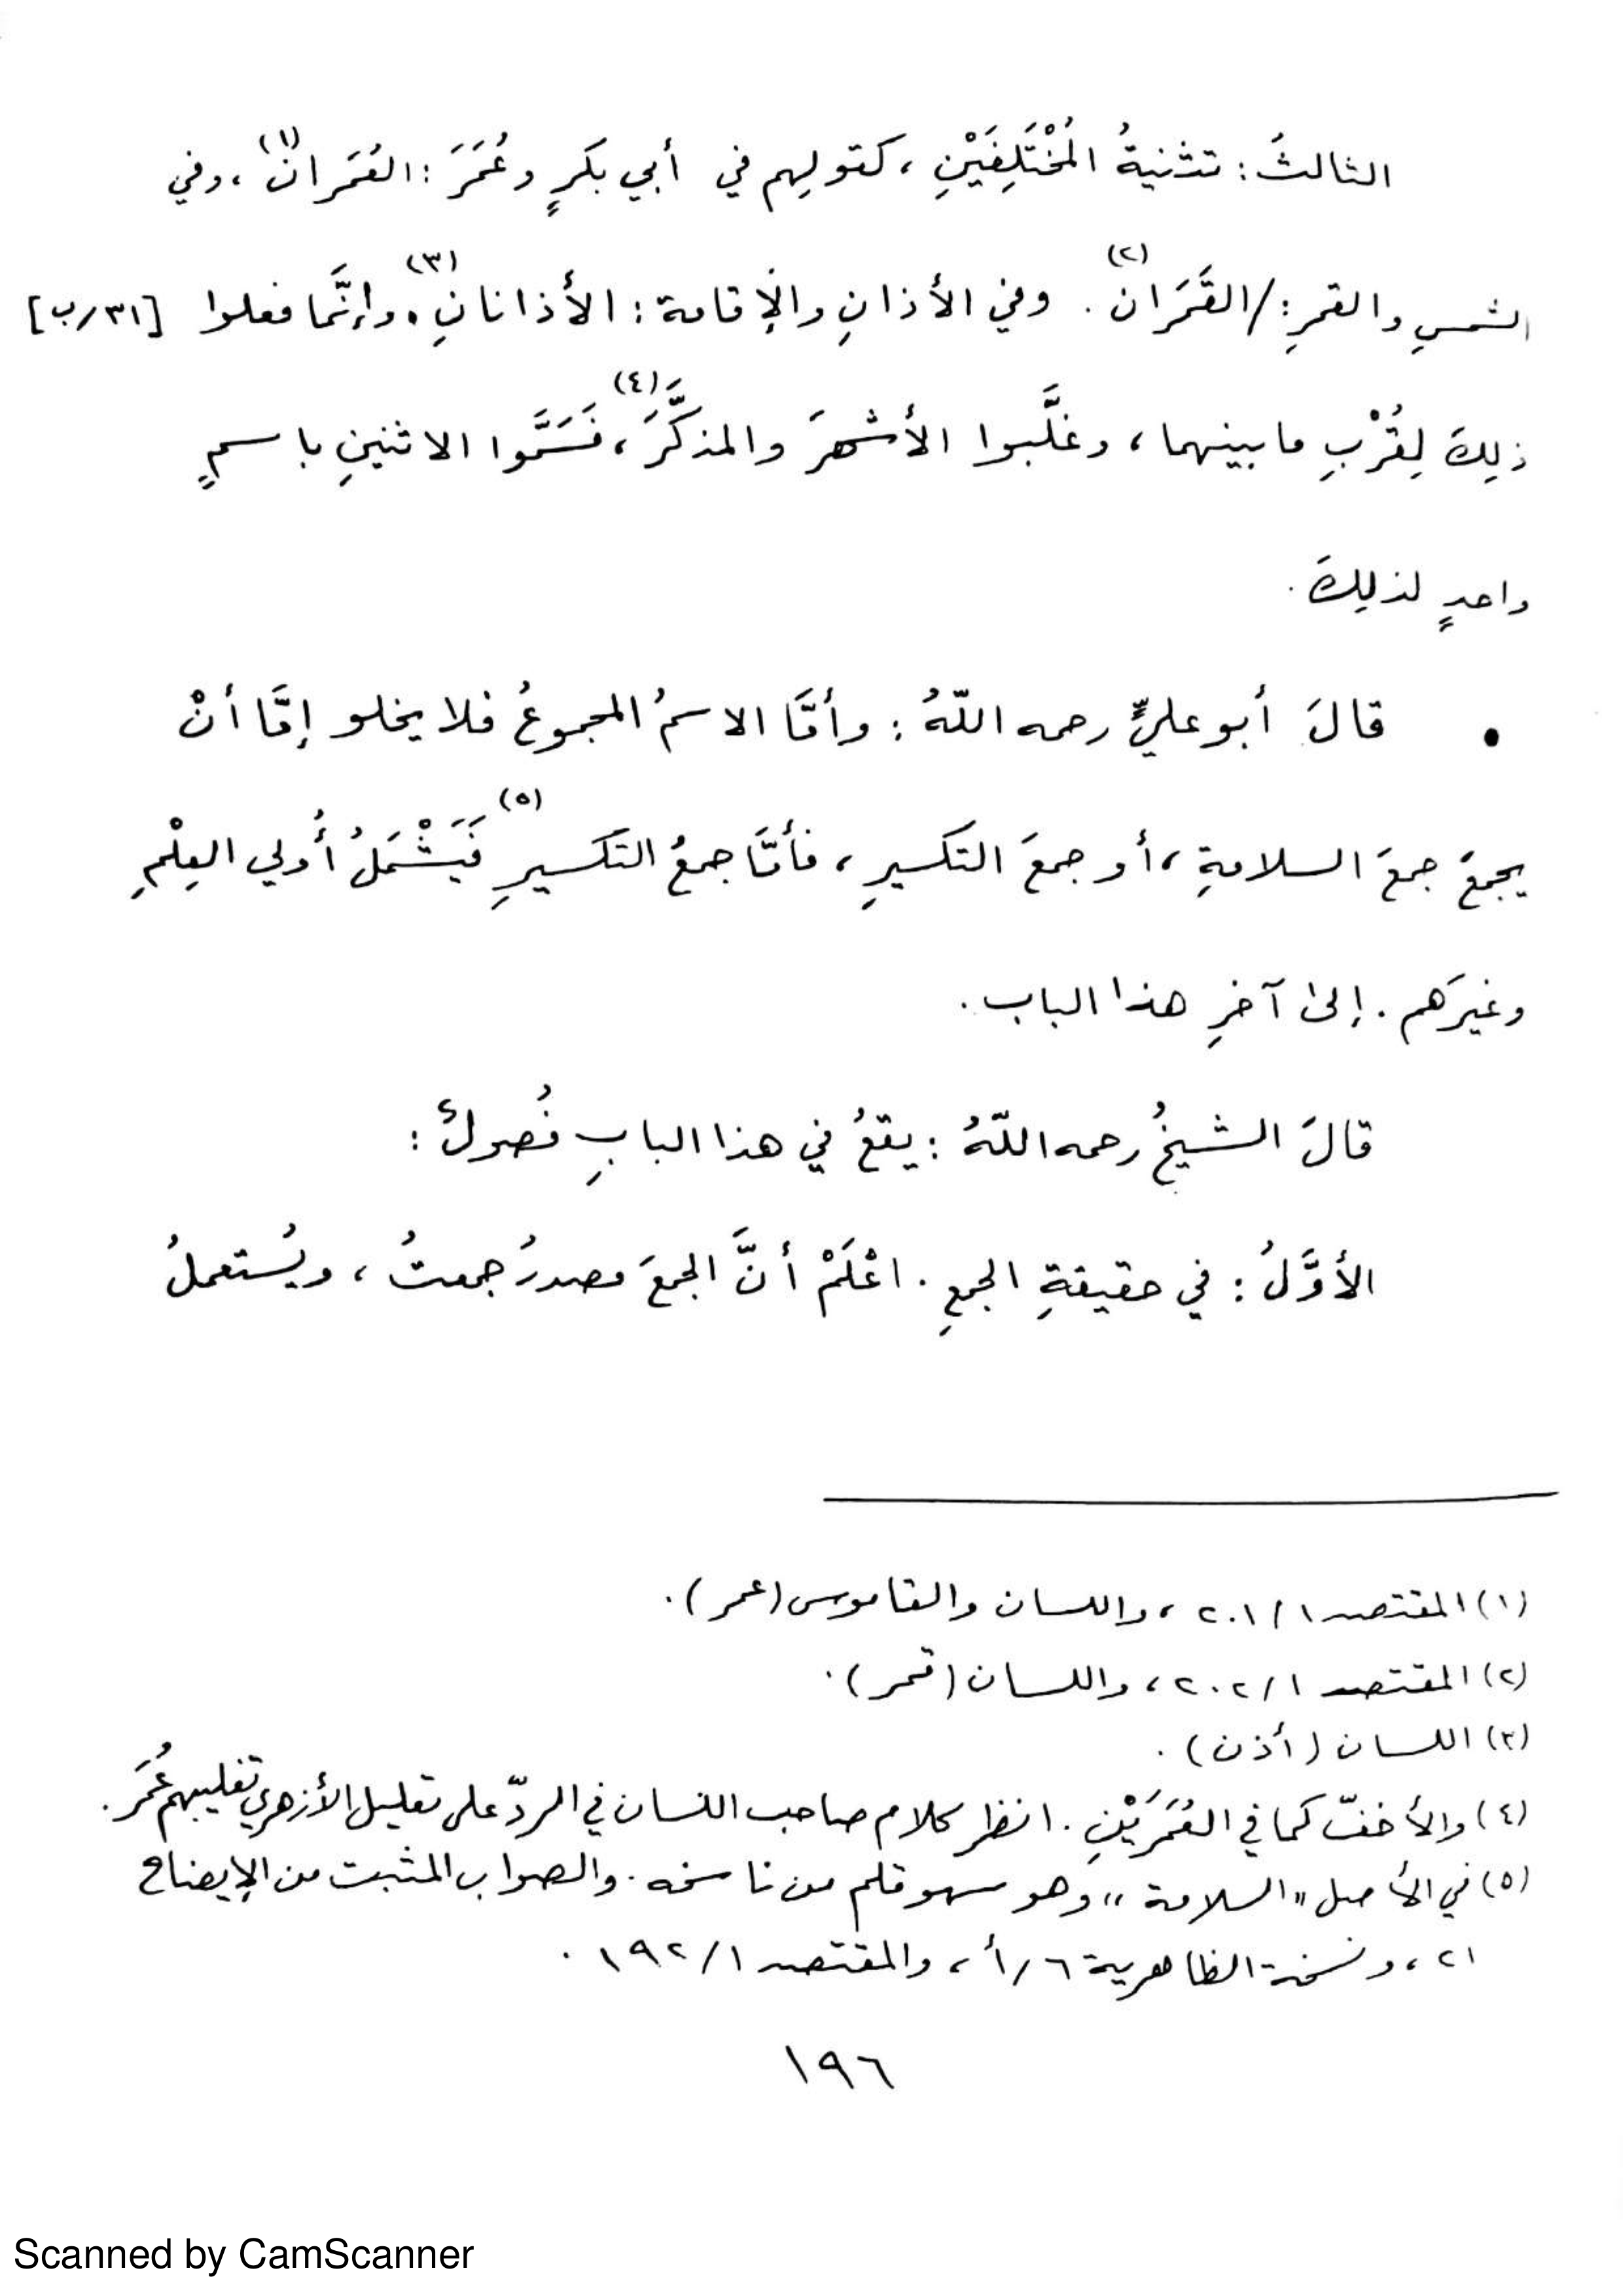 الثالثُ : تثنيةُ المُخْتَلِفَيْنِ ، كقولِهم في أبي بكرٍ وعُمَرَ : العُمَرانِ(١) ، وفي
الشمسِ والقمرِ : / القَمَرَانِ(٢) . وفي الأذانِ والإقامة : الأذانانِ(٣) . وإنَّما فعلوا [٣١/ب]
ذلكَ لِقُرْبِ ما بينهما ، وغلَّبوا الأشهرَ والمذكَّرَ(٤) ، فَسَمَّوا الاثنينِ باسمٍ
واحدٍ لذلكَ .
• قالَ أبو عليٍّ رحمه اللّهُ : وأمَّا الاسمُ المجموعُ فلا يخلو إمَّا أنْ
يجمعَ جمعَ السلامةِ ، أو جمعَ التكسيرِ ، فأمَّا جمعُ التكسيرِ(٥) فَيَشْمَلُ أُولي العِلْمِ
وغيرَهم . إلى آخرِ هذا الباب .
قالَ الشيخُ رحمه اللّهُ : يقعُ في هذا البابِ فُصولٌ :
الأوَّلُ : في حقيقةِ الجمعِ . اعْلَمْ أنَّ الجمعَ مصدرُ جمعتُ ، ويُستعملُ
(١) المقتصد ١/ ٢٠١ ، واللسان والقاموس (عمر) .
(٢) المقتصد ١/ ٢٠٢ ، واللسان (قمر) .
(٣) اللسان (أذن) .
(٤) والأخفّ كما في العُمَرَيْنِ . انظر كلام صاحب اللسان في الردّ على تعليل الأزهري تغليبهم عُمَر .
(٥) في الأصل "السلامة" وهو سهو قلم من ناسخه . والصواب المثبت من الإيضاح
٢١ ، ونسخة الظاهرية ٦/أ ، والمقتصد ١/ ١٩٢ .
١٩٦
Scanned by CamScanner